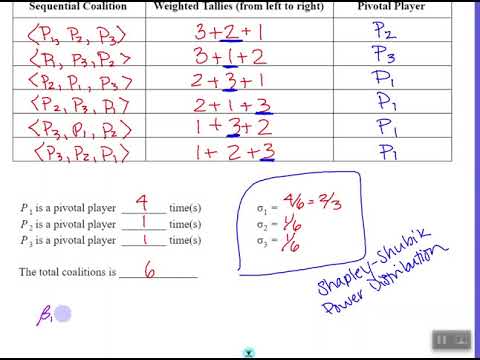 Sequential Coalition Weighted Tallies (from left to right) Pivotal Player
⟨P1, P2, P3⟩ 3+2+1 P2
⟨P1, P3, P2⟩ 3+1+2 P3
⟨P2, P1, P3⟩ 2+3+1 P1
⟨P2, P3, P1⟩ 2+1+3 P1
⟨P3, P1, P2⟩ 1+3+2 P1
⟨P3, P2, P1⟩ 1+2+3 P1
P1 is a pivotal player 4 time(s)
P2 is a pivotal player 1 time(s)
P3 is a pivotal player 1 time(s)
The total coalitions is 6
σ1 = 4/6 = 2/3
σ2 = 1/6
σ3 = 1/6
Shapley-Shubik
Power Distribution
β1